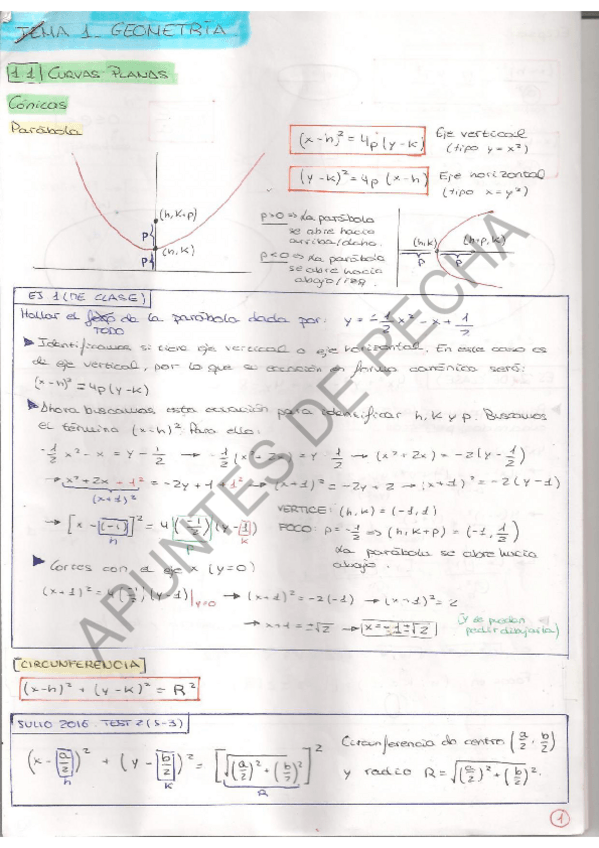 TEMA 1. GEOMETRÍA
1.1 CURVAS PLANAS
Cónicas
Parábola
(x-h)² = 4p(y-k) Eje vertical
(tipo y = x²)
(y-k)² = 4p(x-h) Eje horizontal
(tipo x = y²)
(h, k+p)
p
(h, k)
p
p>0 ⇒ La parábola
se abre hacia
arriba/dcha.
p<0 ⇒ La parábola
se abre hacia
abajo/izq.
(h,k) (h+p, k)
p p
EJ 1 (DE CLASE)
Hallar el foco de la parábola dada por: y = -1/2 x² - x + 1/2
TODO
Identificamos si tiene eje vertical o eje horizontal. En este caso es
de eje vertical, por lo que su ecuación en forma canónica será:
(x-h)² = 4p(y-k)
Ahora buscamos esta ecuación para identificar h, k y p. Buscamos
el término (x-h)². Para ello:
-1/2 x² - x = y - 1/2 → -1/2 (x² + 2x) = y - 1/2 → (x² + 2x) = -2(y - 1/2)
→ x² + 2x + 1² = -2y + 1 + 1² → (x+1)² = -2y + 2 → (x+1)² = -2(y-1)
(x+1)²
VÉRTICE: (h, k) = (-1, 1)
→ [x - (-1)]² = 4 (-1/2) (y - 1) FOCO: p = -1/2 ⇒ (h, k+p) = (-1, 1/2)
h p k
La parábola se abre hacia
abajo.
Cortes con el eje x (y=0)
(x+1)² = 4(-1/2)(y-1)|y=0 → (x+1)² = -2(-1) → (x+1)² = 2
→ x+1 = ±√2 → x = -1 ±√2 (Y se pueden
pedir dibujarla)
CIRCUNFERENCIA
(x-h)² + (y-k)² = R²
JULIO 2016. TEST 2 (S-3)
(x - a/2)² + (y - b/2)² = [√((a/2)² + (b/2)²)]² Circunferencia de centro (a/2, b/2)
h k R
y radio R = √((a/2)² + (b/2)²).
1
APUNTES DE PECHA